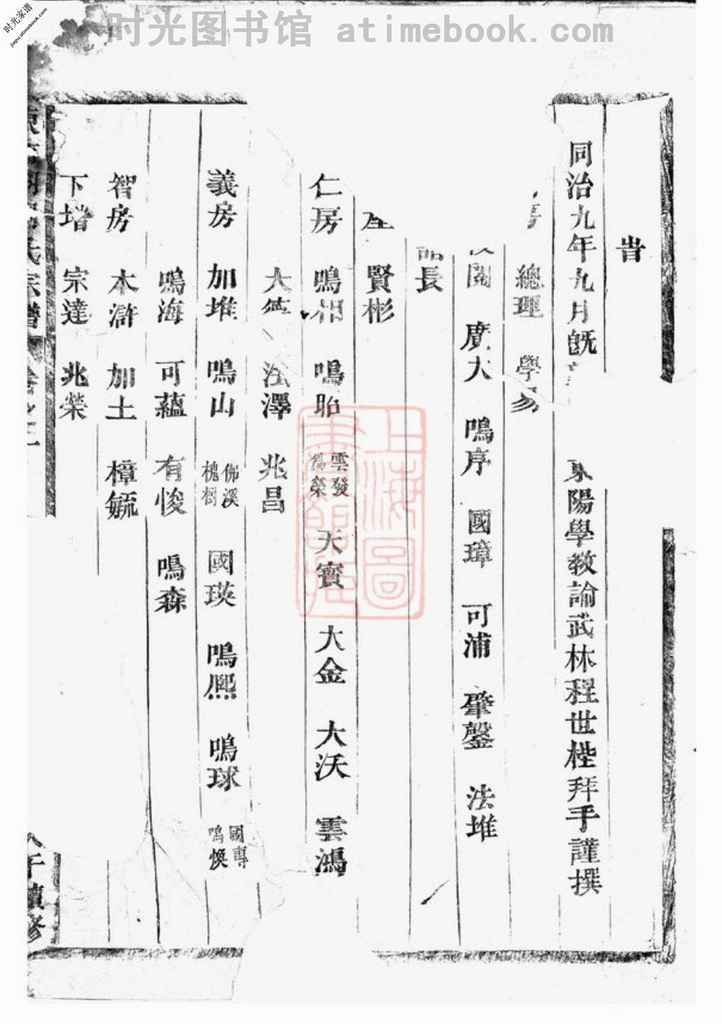 时光图书馆 atimebook.com
时光家谱
旹
同治九年九月既 東陽學教諭武林程世樫拜手謹撰
總理 學易
校閱 廣大 鳴序 國璋 可浦 肇鏧 法堆
長
賢彬
仁房 鳴相 鳴貽 雲發 天寶 大金 大沃 雲鴻
大 法澤 兆昌
義房 加堆 鳴山 佛溪 槐樹 國瑛 鳴熙 鳴球 國專 鳴煥
鳴海 可蘊 有悛 鳴森
智房 本滸 加土 樟毓
下增 宗達 兆榮
氏宗譜
午續修
上海圖